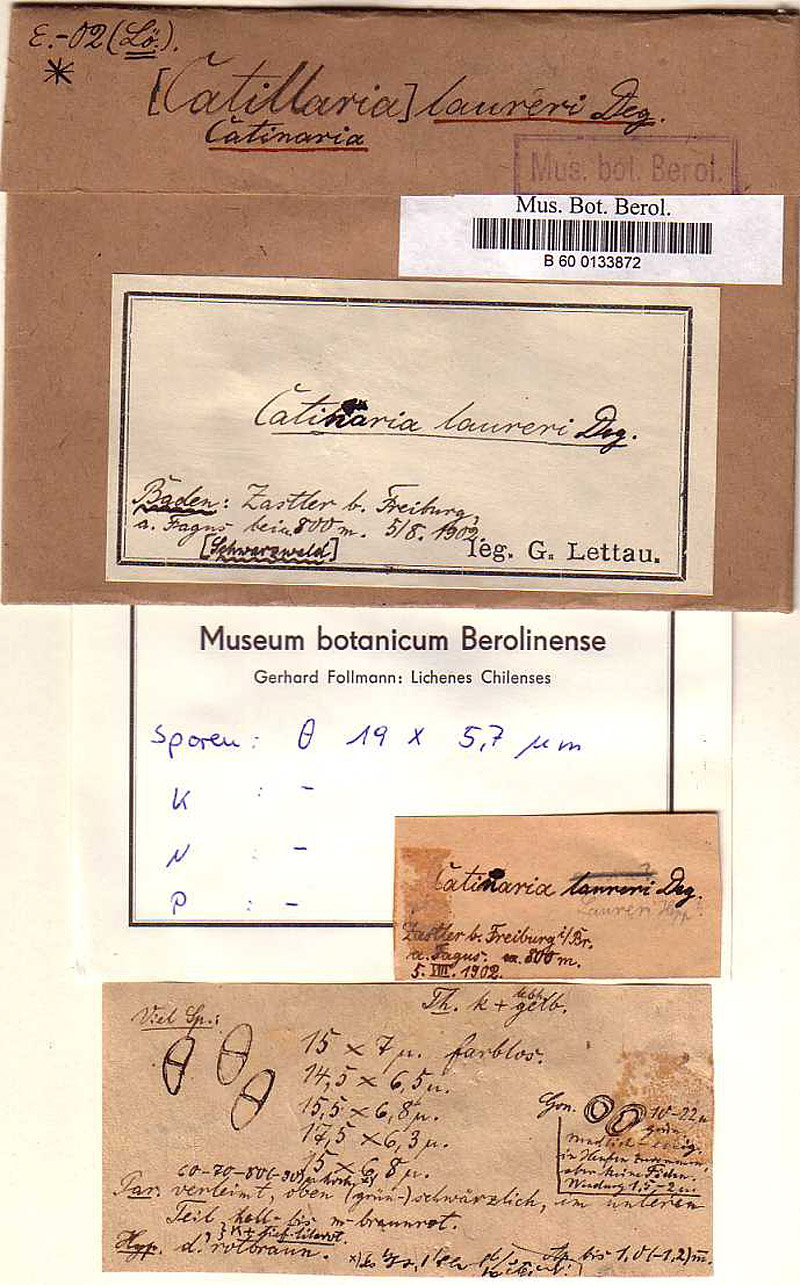 E.-02 (Lö.).
*
[Catillaria] laureri Deg.
Catinaria
Mus. bot. Berol.
Mus. Bot. Berol.
B 60 0133872
Catinaria laureri Deg.
Baden: Zastler b. Freiburg,
a. Fagus bei ca. 800 m. 5/8. 1902.
[Schwarzwald]
leg. G. Lettau.
Museum botanicum Berolinense
Gerhard Follmann: Lichenes Chilenses
Sporen: θ 19 x 5,7 µm
K : -
N : -
P : -
Catinaria laureri Deg.
Laureri Hepp.
Zastler b. Freiburg i/Br.
a. Fagus. ca. 800 m.
5. VIII. 1902.
Th. k + gelb.
Viel Sp.:
15 × 7 µ. farblos.
14,5 × 6,5 µ.
15,5 × 6,8 µ.
17,5 × 6,3 µ.
15 × 6,8 µ.
Gon. 10-22 µ
grün
in Haufen zusammen,
aber keine Fäden.
Wandung 1,5-2 µ.
60-70-80(-90) µ hoch,
Par. verleimt, oben (grün-)schwärzlich, im unteren
Teil hell- bis m-braunrot.
Hyp. d. rotbraun.
Ap. bis 1,0(-1,2) m.